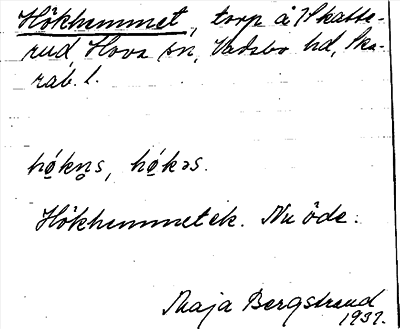 Hökhemmet, torp å Skatte-
rud, Hova sn, Vadsbo hd, Ska-
rab. l.
hǿkn̥s, hǿkəs.
Hökhemmet ek. Nu öde.
Maja Bergstrand
1937.